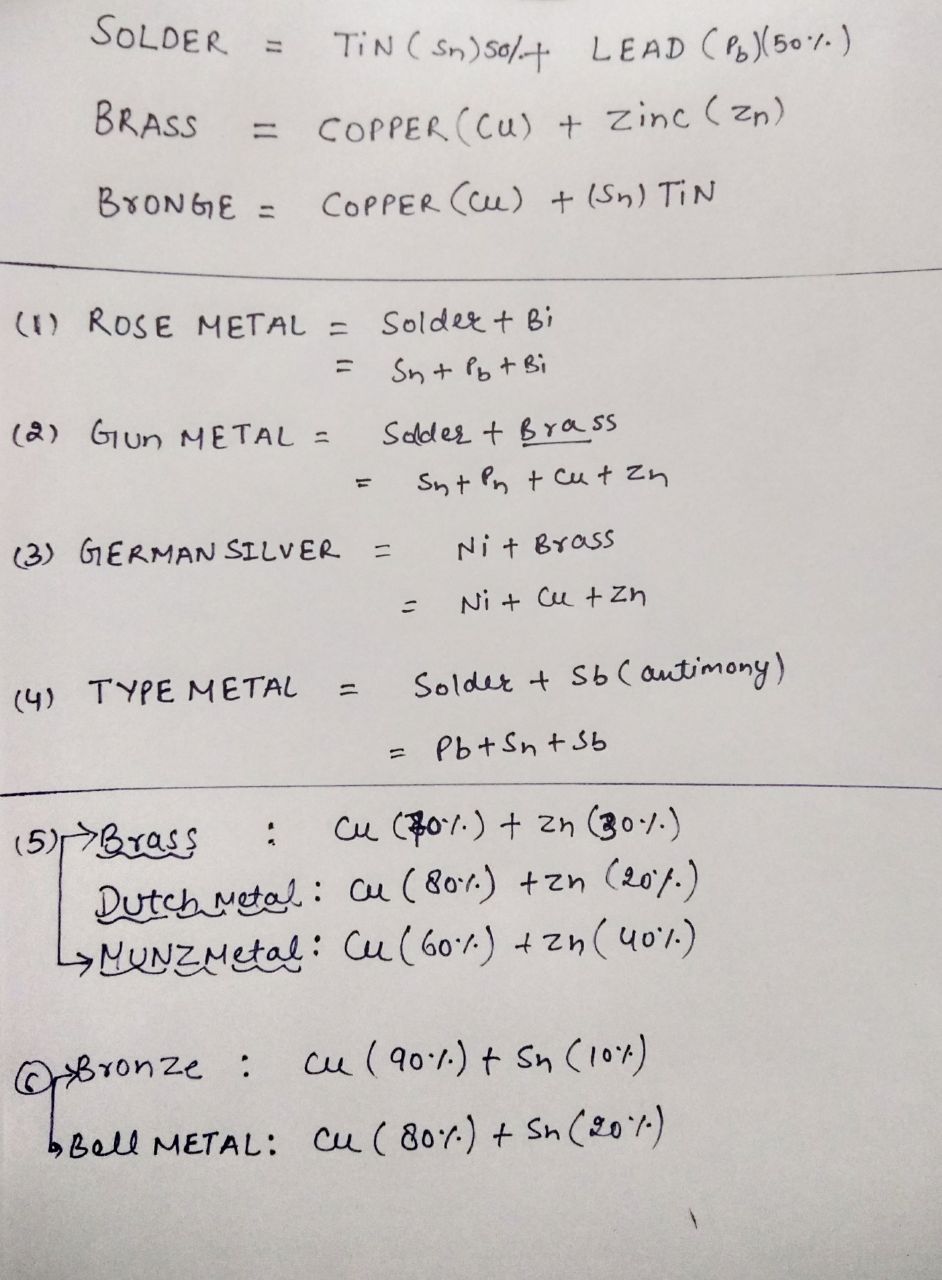 SOLDER = TiN (Sn) 50% + LEAD (Pb)(50%)
BRASS = COPPER (Cu) + Zinc (Zn)
BrONGE = COPPER (Cu) + (Sn) TiN
(1) ROSE METAL = Solder + Bi
= Sn + Pb + Bi
(2) Gun METAL = Solder + Brass
= Sn + Pn + Cu + Zn
(3) GERMAN SILVER = Ni + Brass
= Ni + Cu + Zn
(4) TYPE METAL = Solder + Sb (antimony)
= Pb + Sn + Sb
(5) → Brass : Cu (70%) + Zn (30%)
Dutch Metal : Cu (80%) + Zn (20%)
→ MUNZ Metal : Cu (60%) + Zn (40%)
6 → Bronze : Cu (90%) + Sn (10%)
→ Bell METAL : Cu (80%) + Sn (20%)